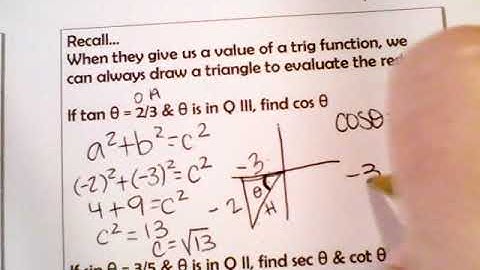 Recall...
When they give us a value of a trig function, we
can always draw a triangle to evaluate the
O A
If tan θ = 2/3 & θ is in Q III, find cos θ
a²+b²=c²
cosθ
(-2)²+(-3)²=c²
-3
-3
4+9=c²
-2
θ
H
c²=13
c=√13
If sin θ = 3/5 & θ is in Q II, find sec θ & cot θ